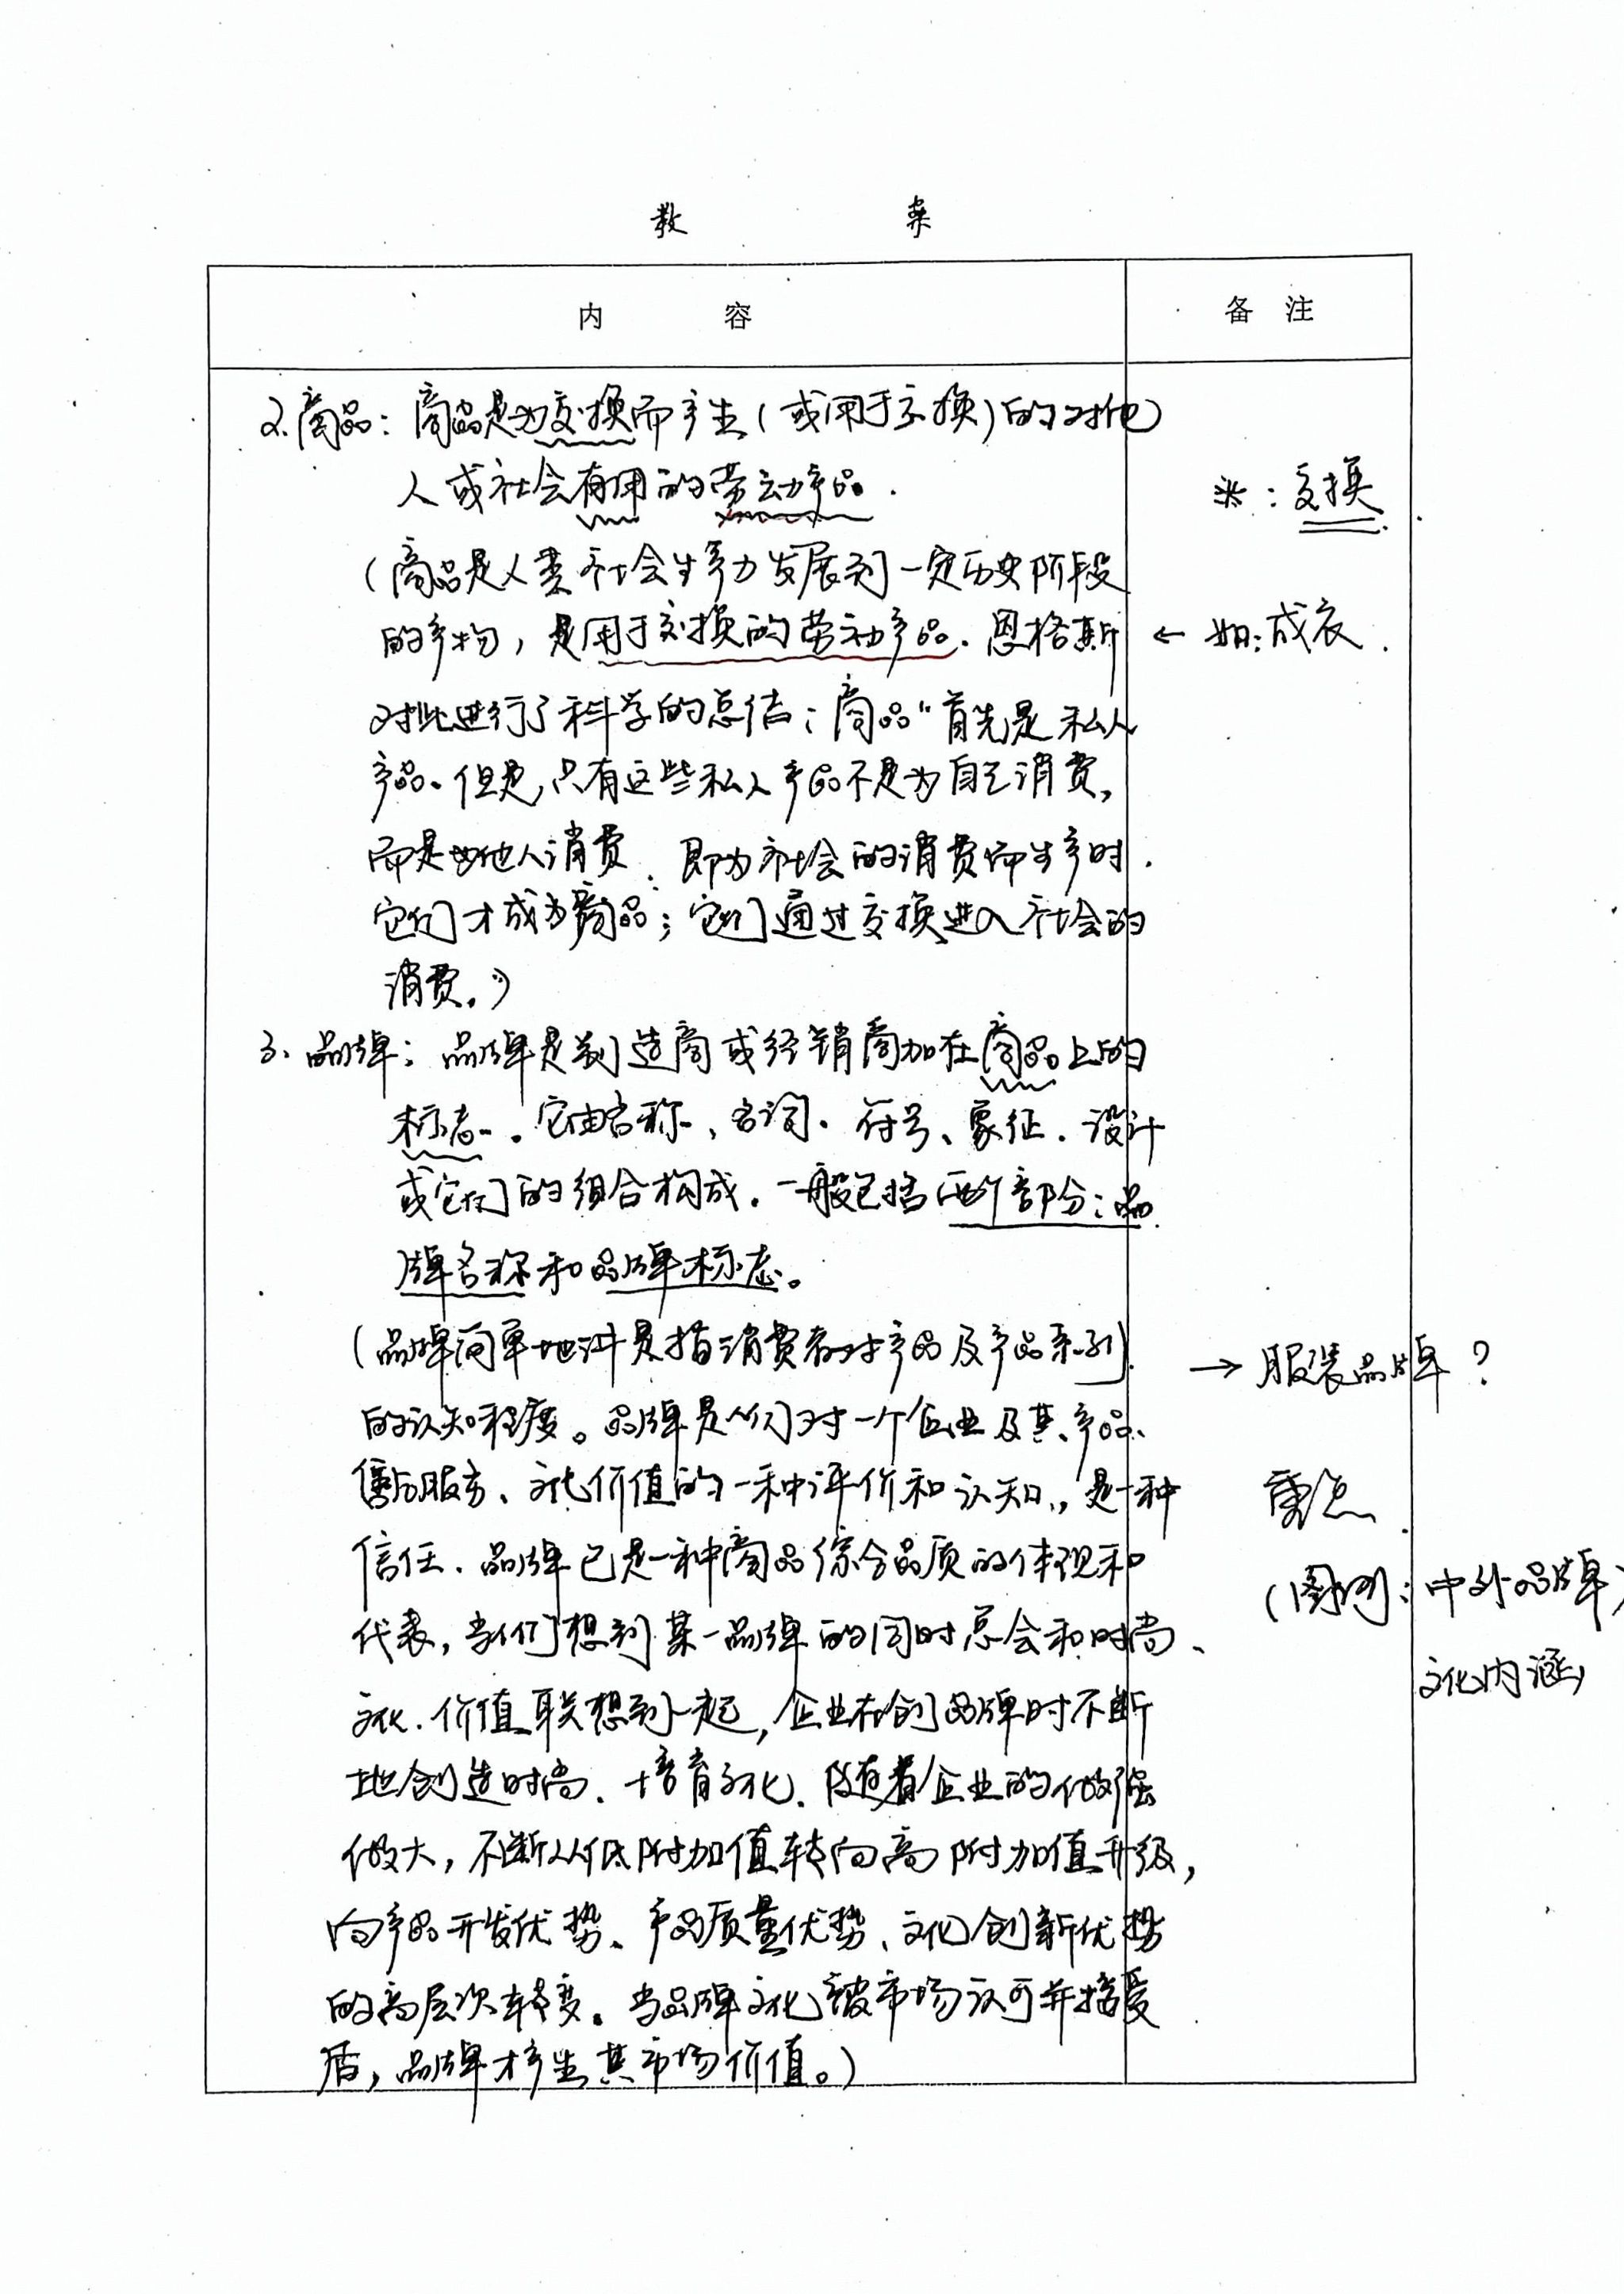 教 案
内 容 备 注
2.商品：商品是为交换而产生（或用于交换）的对他
人或社会有用的劳动产品．
※：交换
（商品是人类社会生产力发展到一定历史阶段
的产物，是用于交换的劳动产品．恩格斯 ← 如：成衣．
对此进行了科学的总结：商品“首先是私人
产品。但是，只有这些私人产品不是为自己消费，
而是为他人消费．即为社会的消费而生产时．
它们才成为商品；它们通过交换进入社会的
消费。”）
3、品牌：品牌是制造商或经销商加在商品上的
标志。它由名称、名词、符号、象征．设计
或它们的组合构成．一般包括两个部分：品
牌名称和品牌标志。
（品牌简单地讲是指消费者对产品及产品系列 → 服装品牌？
的认知程度。品牌是人们对一个企业及其产品、
售后服务、文化价值的一种评价和认知，是一种 重点
信任．品牌已是一种商品综合品质的体现和
（图例：中外品牌）
代表，当人们想到某一品牌的同时总会和时尚、
文化内涵
文化．价值联想到一起，企业在创品牌时不断
地创造时尚．培育文化．随着企业的做强
做大，不断从低附加值转向高附加值升级，
向产品开发优势、产品质量优势、文化创新优势
的高层次转变。当品牌文化被市场认可并接受
后，品牌才产生其市场价值。）